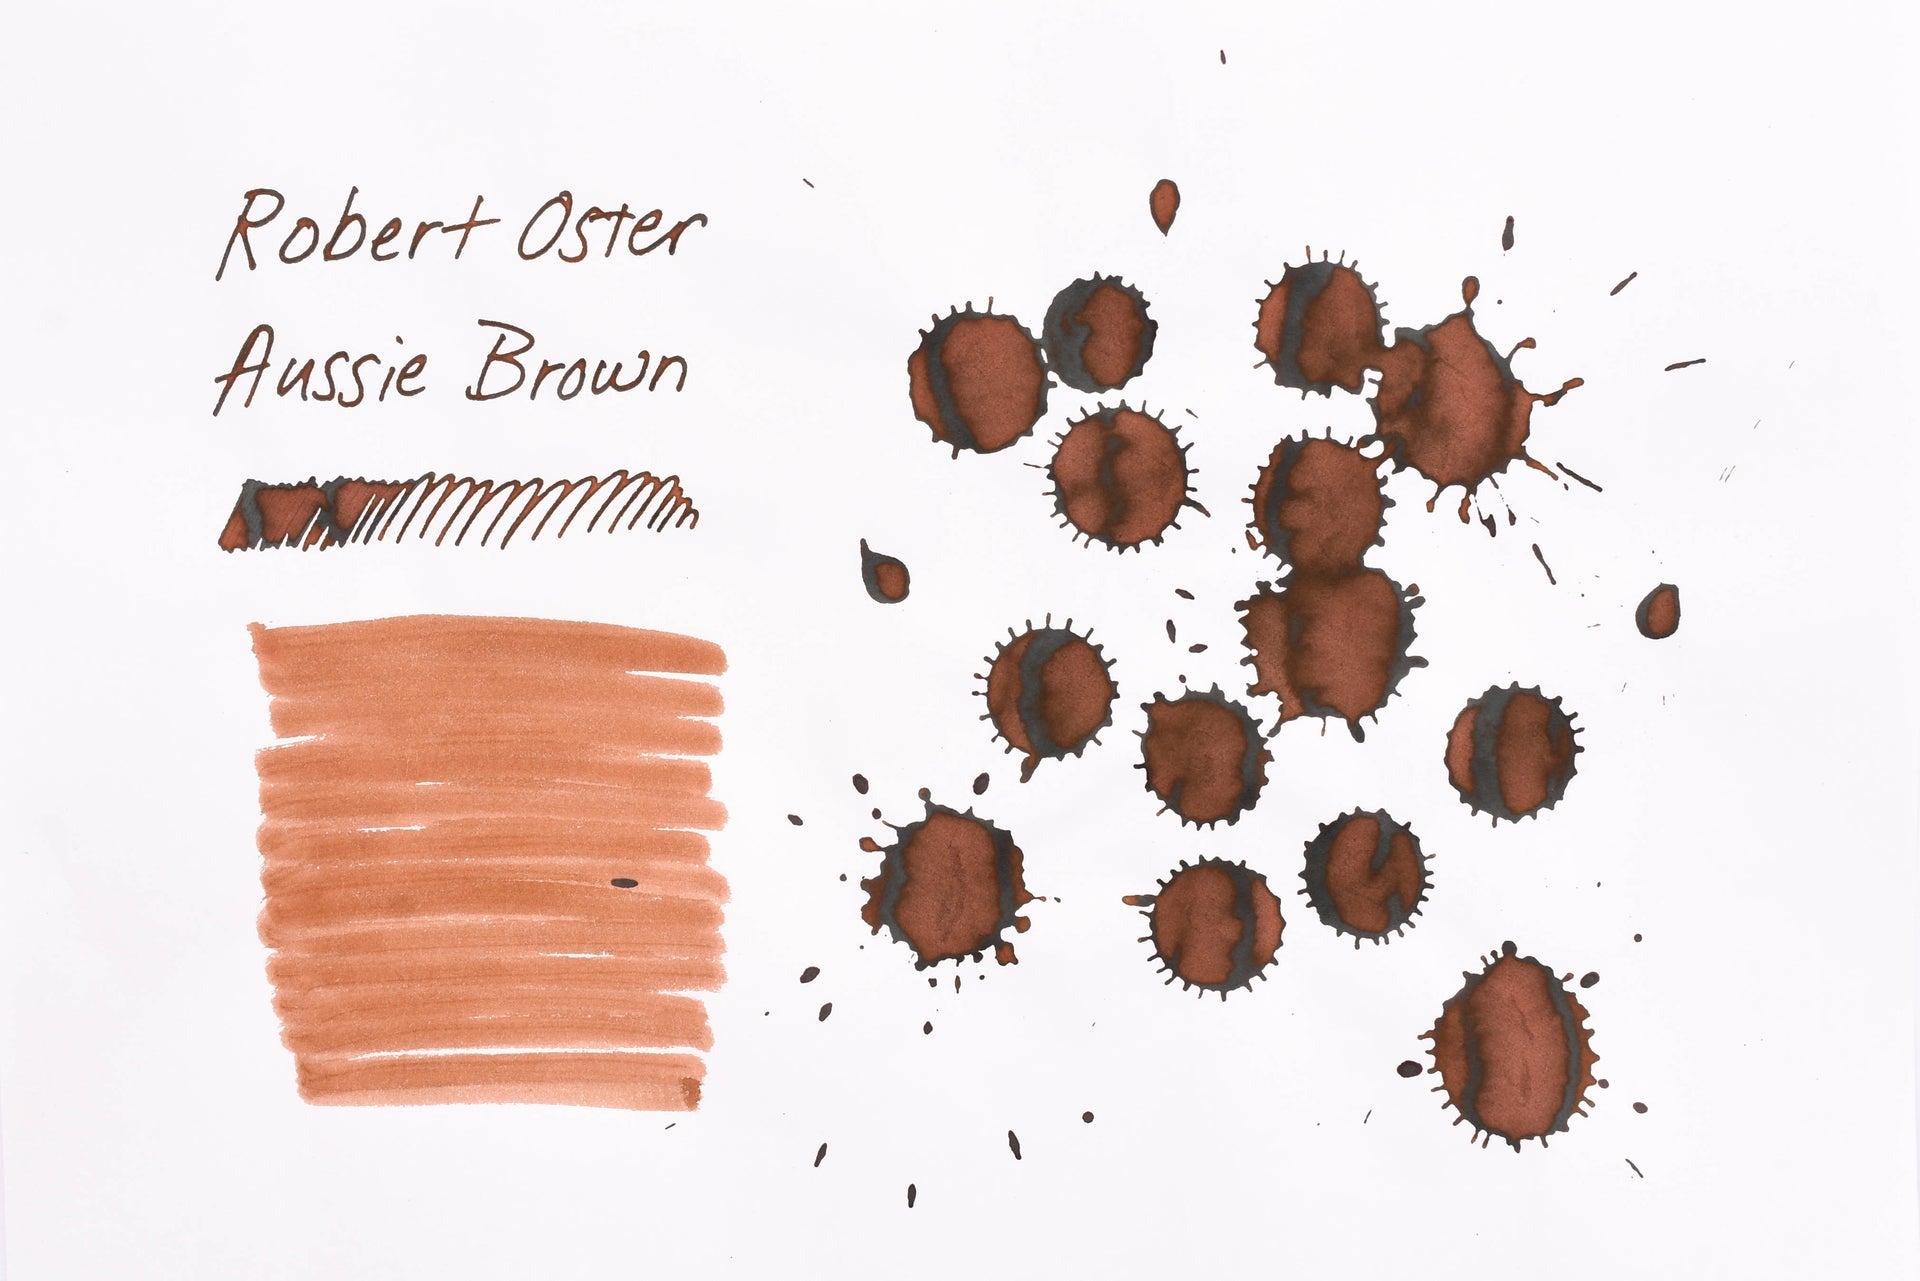 Robert Oster
Aussie Brown